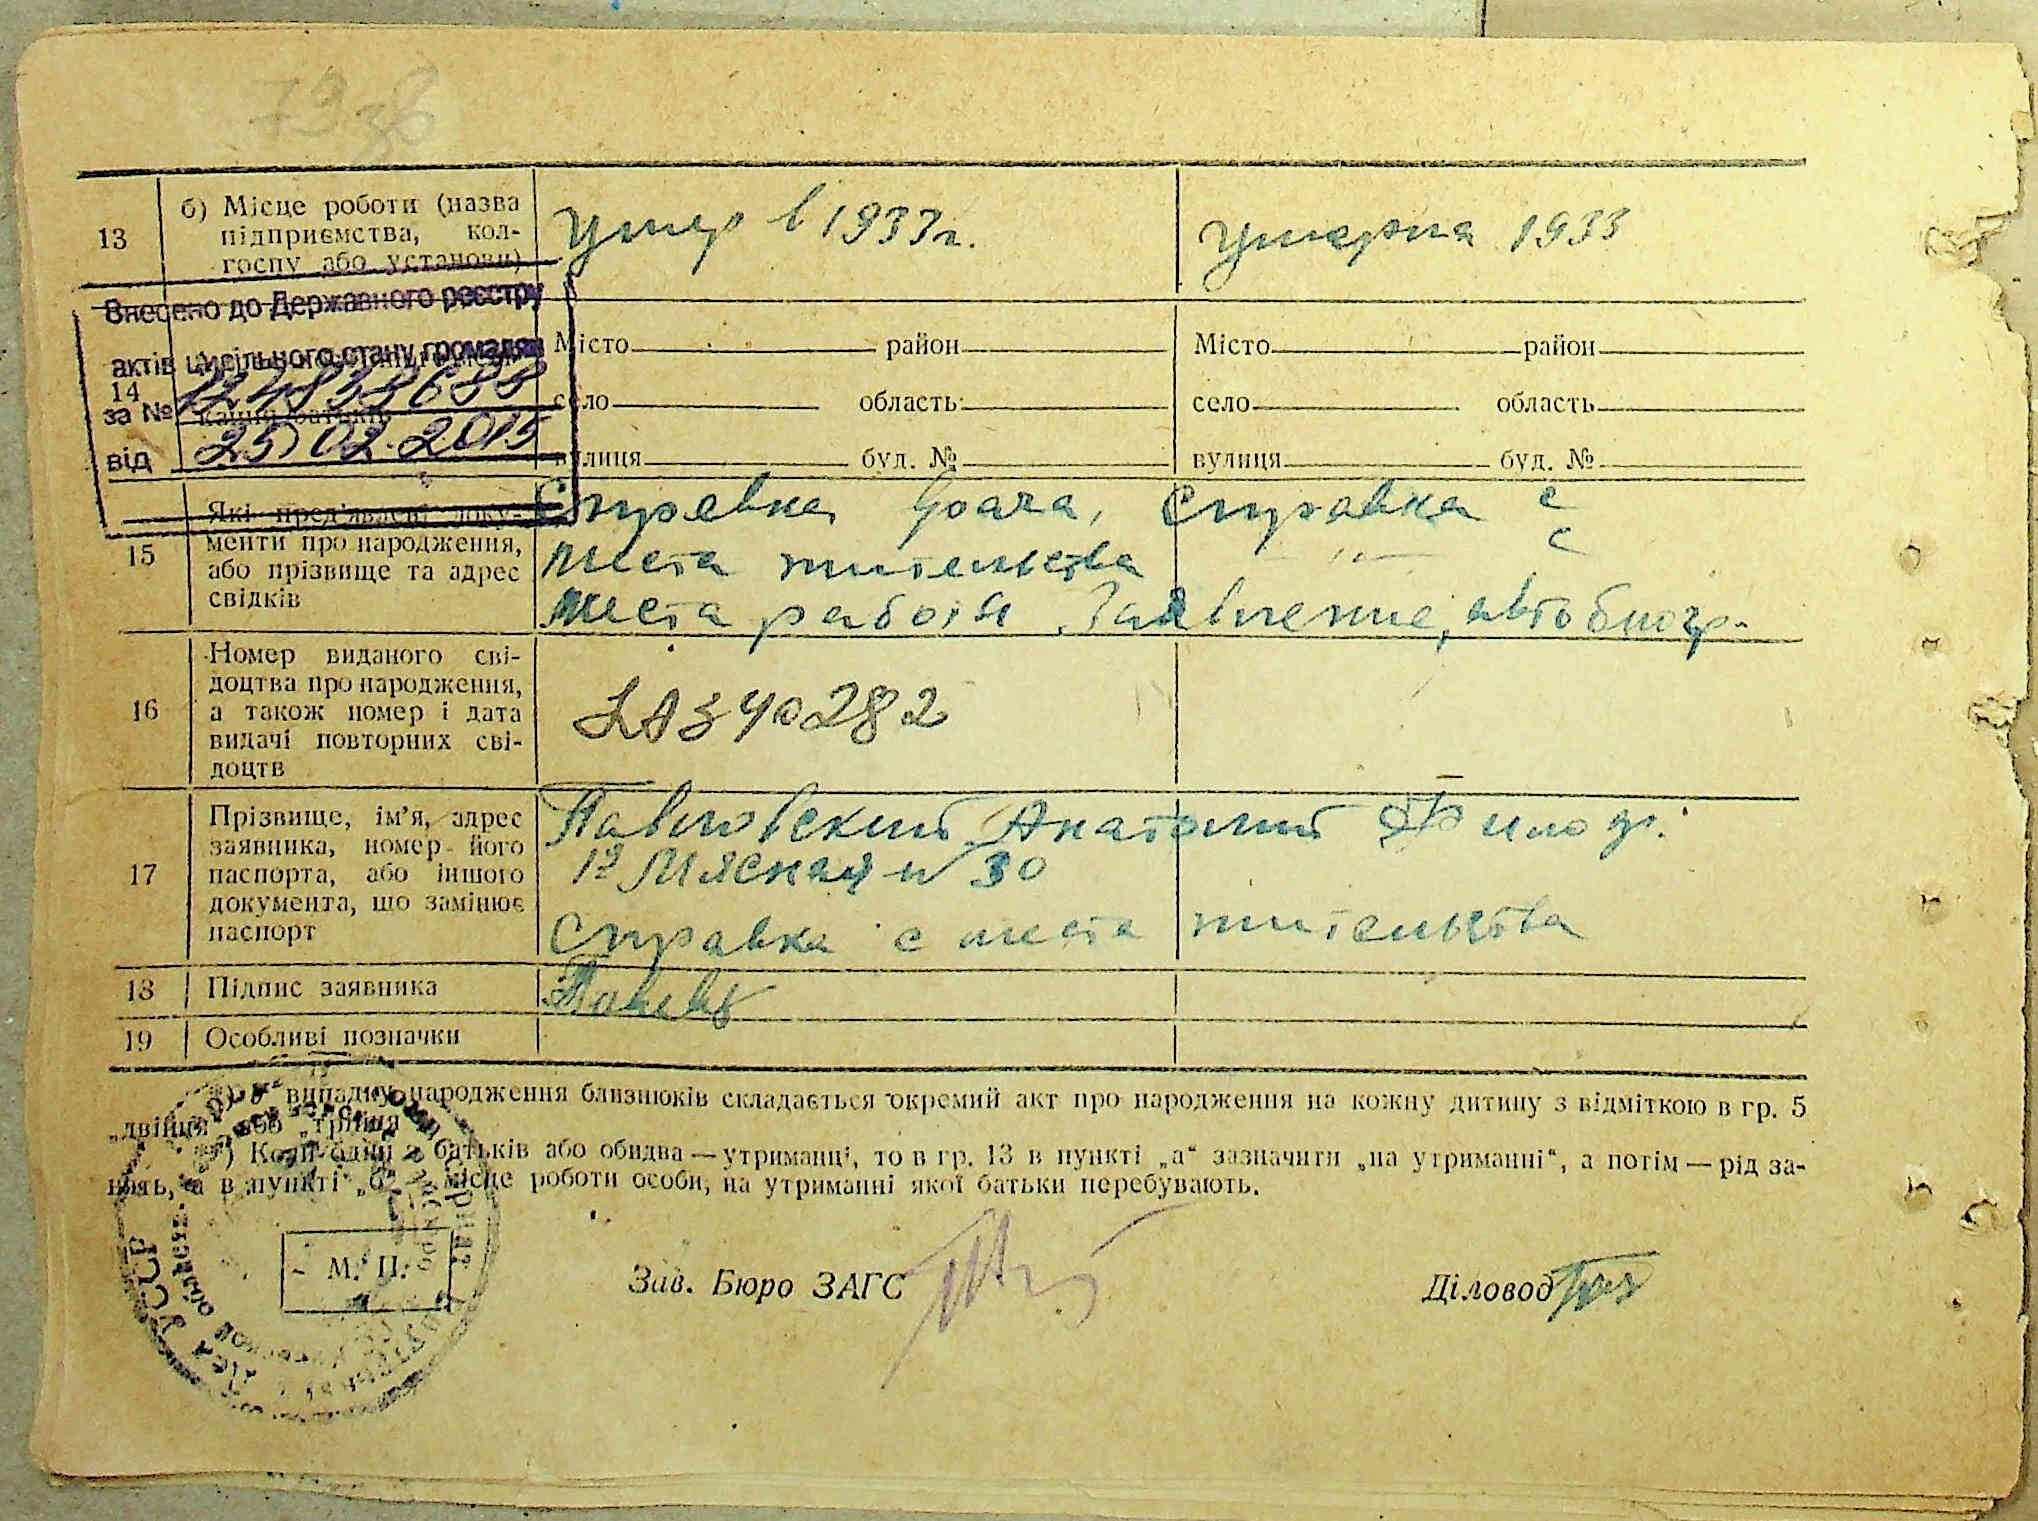 13
б) Місце роботи (назва
підприємства, кол-
госпу або установи)
умер в 1933 г.
умерла 1933
Внесено до Державного реєстру
актів цивільного стану громадян
за №
від 25 02. 2015
14
Місто район
село область
вулиця буд. №
Місто район
село область
вулиця буд. №
15
Які пред'явлені доку-
менти про народження,
або прізвище та адрес
свідків
Справка врача, справка с
места жительства —"— с
места работы. Заявление, автобиогр.
16
Номер виданого сві-
доцтва про народження,
а також номер і дата
видачі повторних сві-
доцтв
340282
17
Прізвище, ім'я, адрес
заявника, номер його
паспорта, або іншого
документа, що замінює
паспорт
Павловский Анатолий
30
Справка с места жительства
18
Підпис заявника
19
Особливі позначки
випадку народження близнюків складається окремий акт про народження на кожну дитину з відміткою в гр. 5
„двійня" або „трійня"
Коли один з батьків або обидва — утриманці, то в гр. 13 в пункті „а" зазначити „на утриманні", а потім — рід за-
нять, а в пункті „б" місце роботи особи, на утриманні якої батьки перебувають.
М. П.
Зав. Бюро ЗАГС
Діловод
УССР